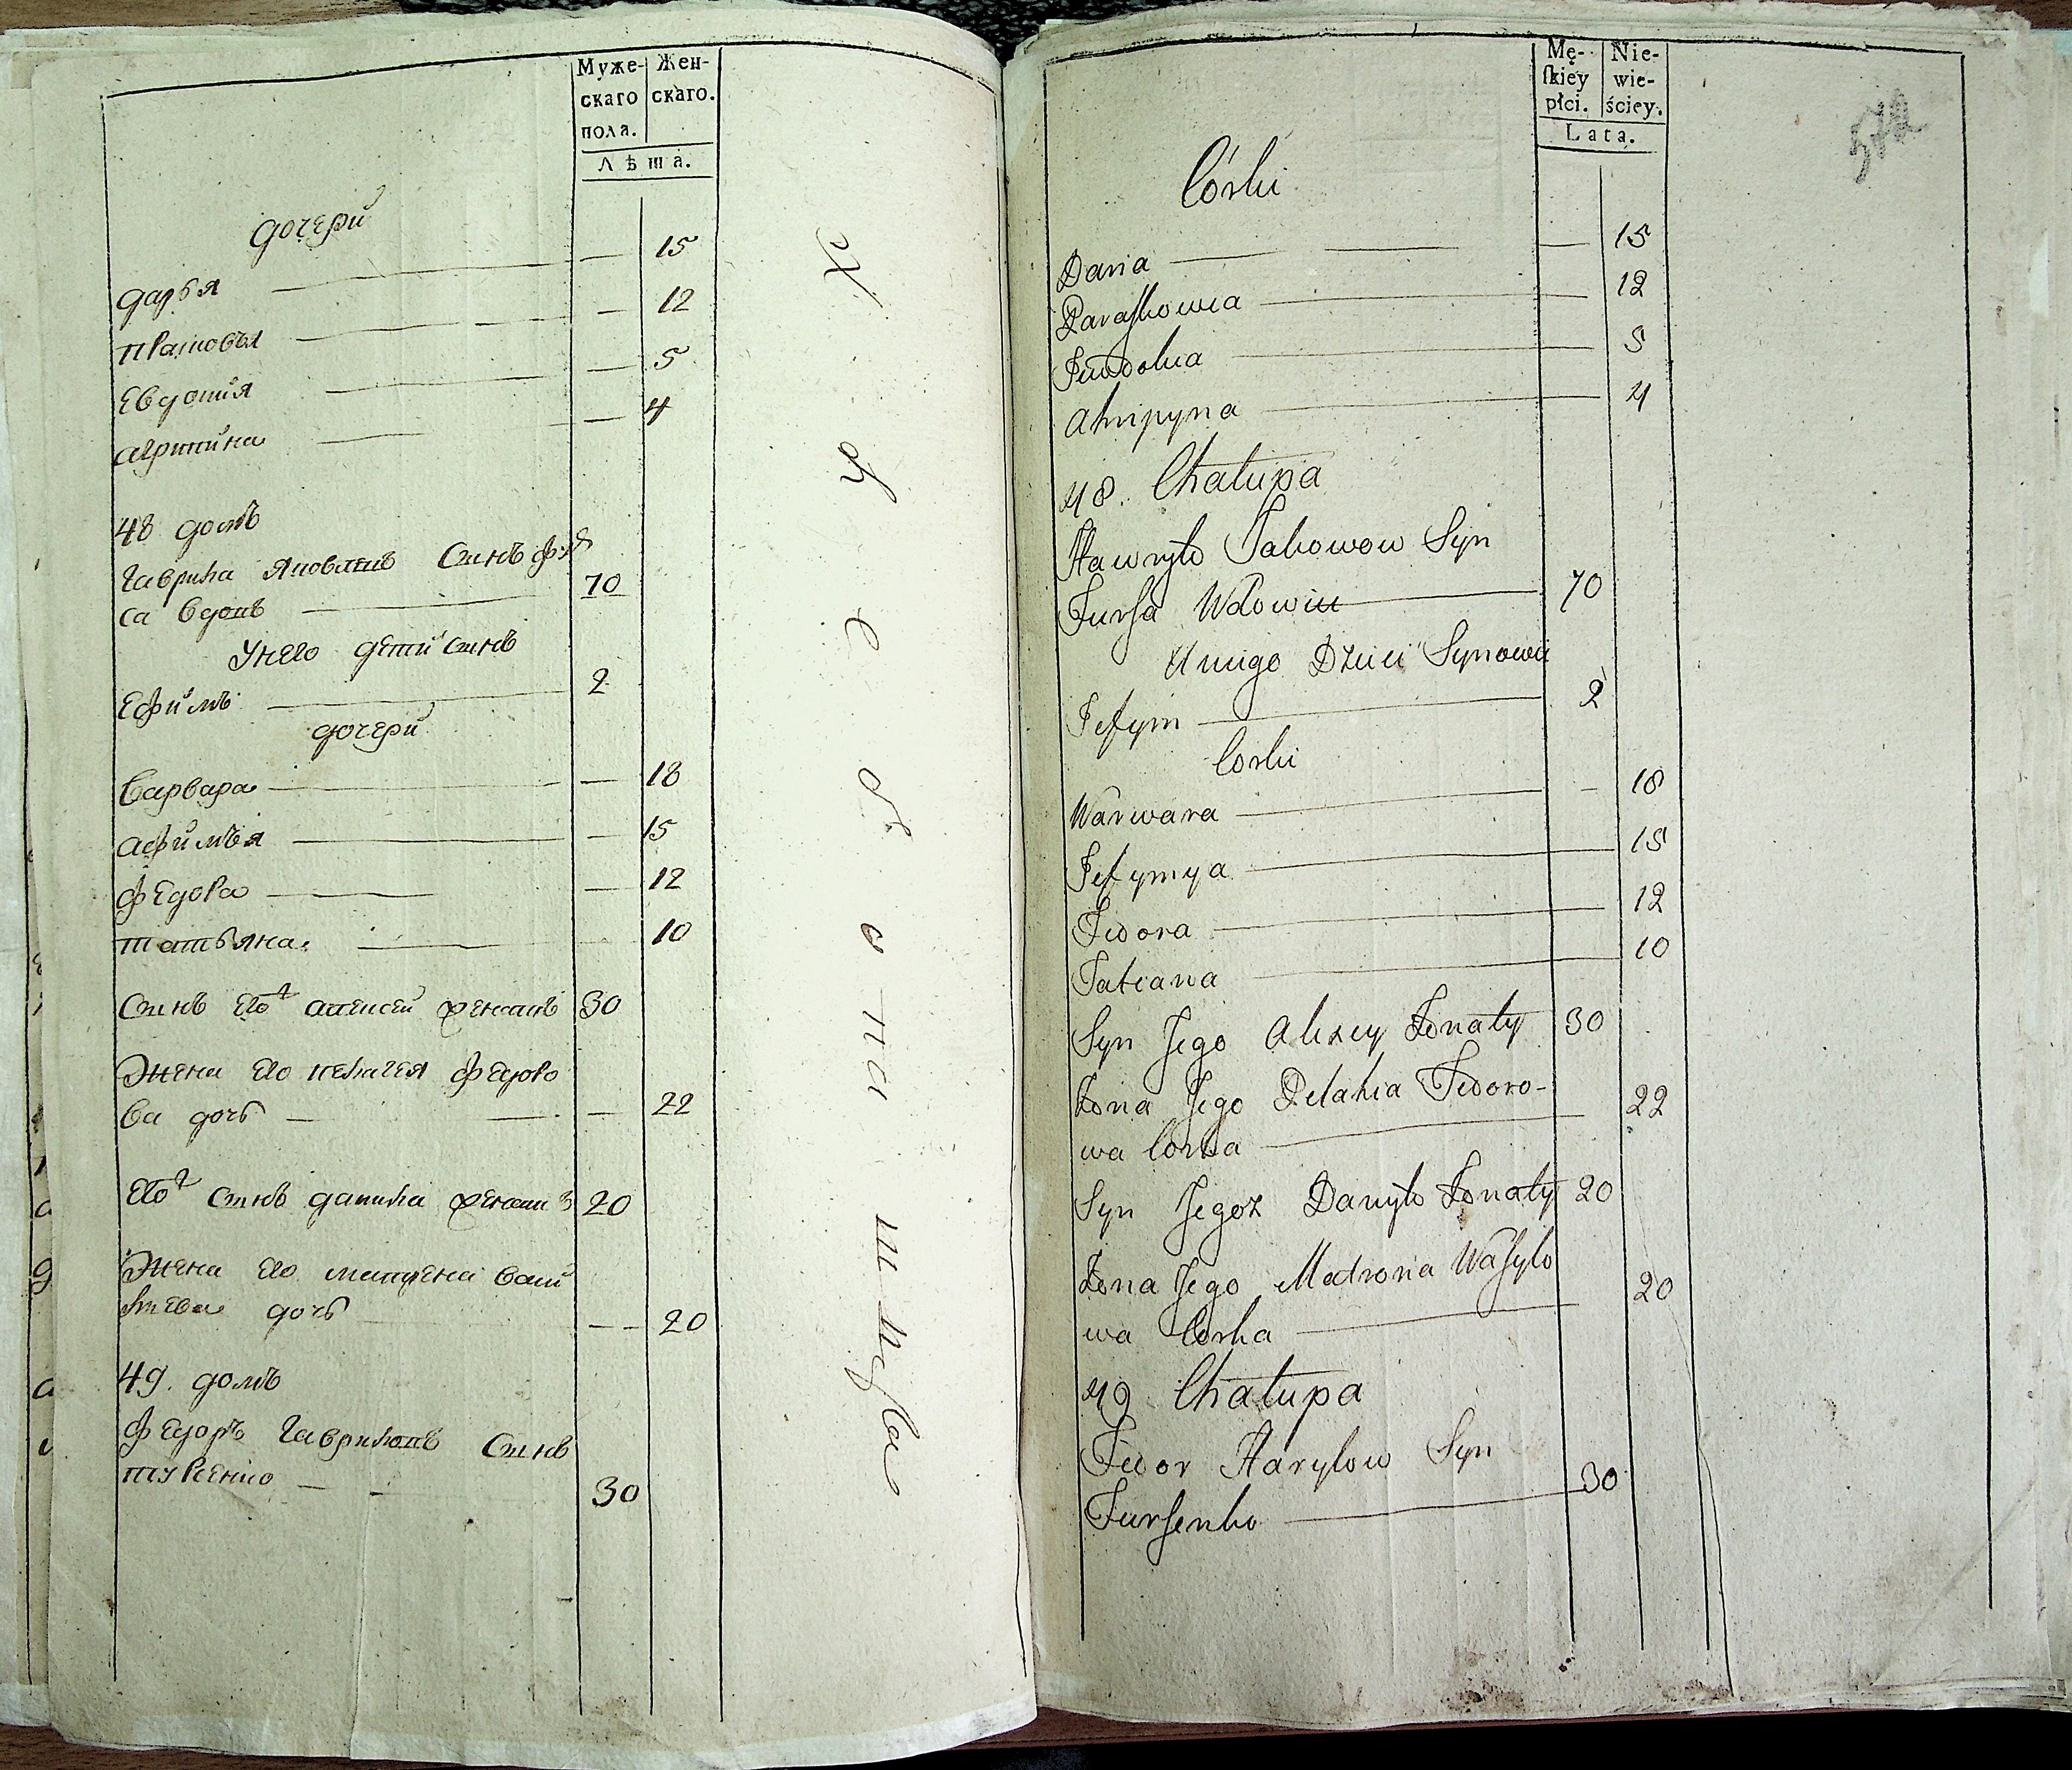 Муже-
скаго
пола.
Жен-
скаго.
Лѣта.
дочери
дарья — 15
прасковья — 12
Евдокия — 5
агрипина — 4
48 домъ
Гаврила яковлевъ Сынъ фур
са вдовъ — 70
Унего дети сынъ
Ефимъ — 2
дочери
варвара — 18
афимья — 15
федора — 12
татьяна — 10
Сынъ Его алексей женатъ 30
Жена Его пелагея федоро
ва дочь — 22
Его сынъ данила женатъ 20
Жена Его матрена васи
льева дочь — 20
49. домъ
федоръ Гавриловъ Сынъ
фурсенко — 30
Mę-
ſkiey
płci.
Nie-
wie-
ściey.
Lata.
Córki
Daria — 15
Paraſkowia — 12
Jewdokia — 5
Ahripyna — 4
48. Chałupa
Hawryło Jakowow Syn
Furſa Wdowiec — 70
U niego Dzieci Synowie
Jefym — 2
Corki
Warwara — 18
Jefymya — 15
Fedora — 12
Tatiana — 10
Syn Jego Alexey Żonaty 30
Żona Jego Pelahia Fedoro-
wa Corka — 22
Syn Jegoż Danyło Żonaty 20
Żona Jego Madrona Waſylo
wa Corka — 20
49 Chałupa
Fedor Harylow Syn
Furſenko — 30